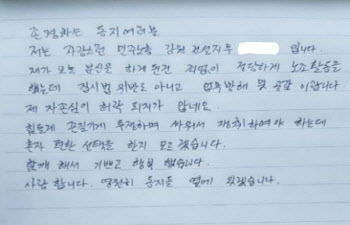 존경하는 동지 여러분
저는 자랑스런 민주노총 강원 건설지부 입니다.
제가 오늘 분신을 하게 된건 죄없이 정당하게 노조활동을
했는데 집시법 위반도 아니고 업무방해 및 공갈이랍니다
제 자존심이 허락 되지가 않네요.
힘들게 끈질기게 투쟁하며 싸워서 쟁취하여야 하는데
혼자 편한 선택을 한지 모르겠습니다.
함께 해서 기쁘고 행복 했습니다.
사랑 합니다. 영원히 동지들 옆에 있겠습니다.